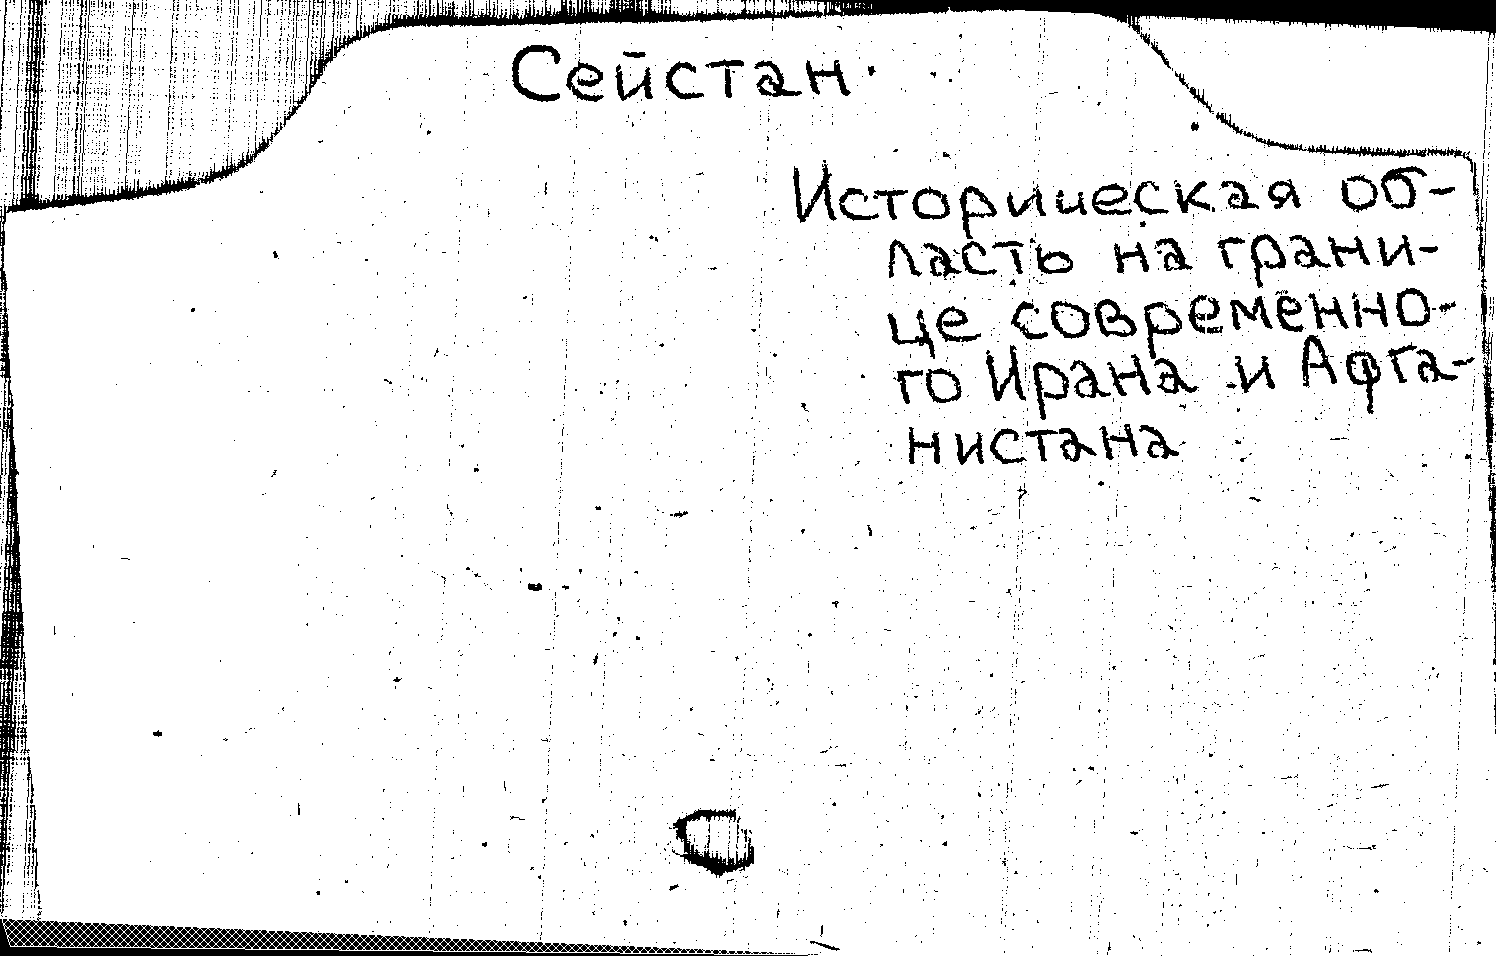 Сейстан.
Историческая об-
ласть на грани-
це современно-
го Ирана и Афга-
нистана